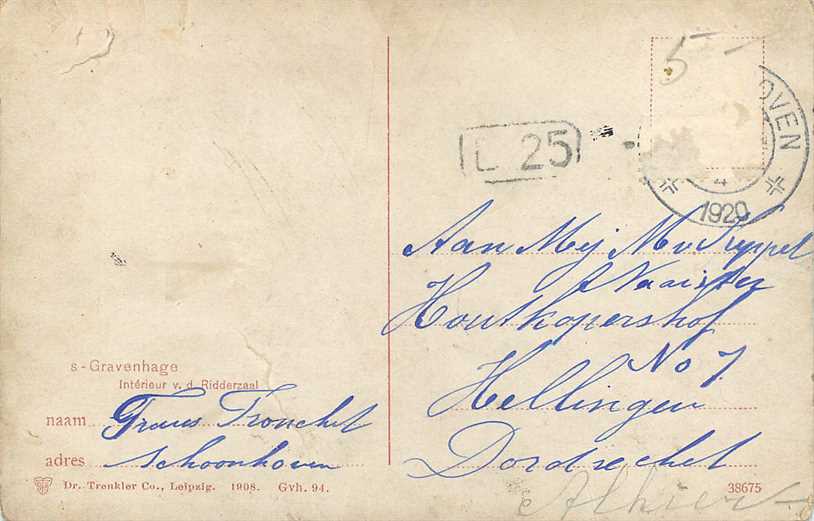 5 -
L 25
OVEN
4
1920
Aan Mej M v d
Naaister
Houtkopershof
No 7
Hellingen
Dordrecht
Alhier
s-Gravenhage
Intérieur v. d. Ridderzaal
naam Frans Tronchet
adres Schoonhoven
Dr. Trenkler Co., Leipzig. 1908. Gvh. 94.
38675